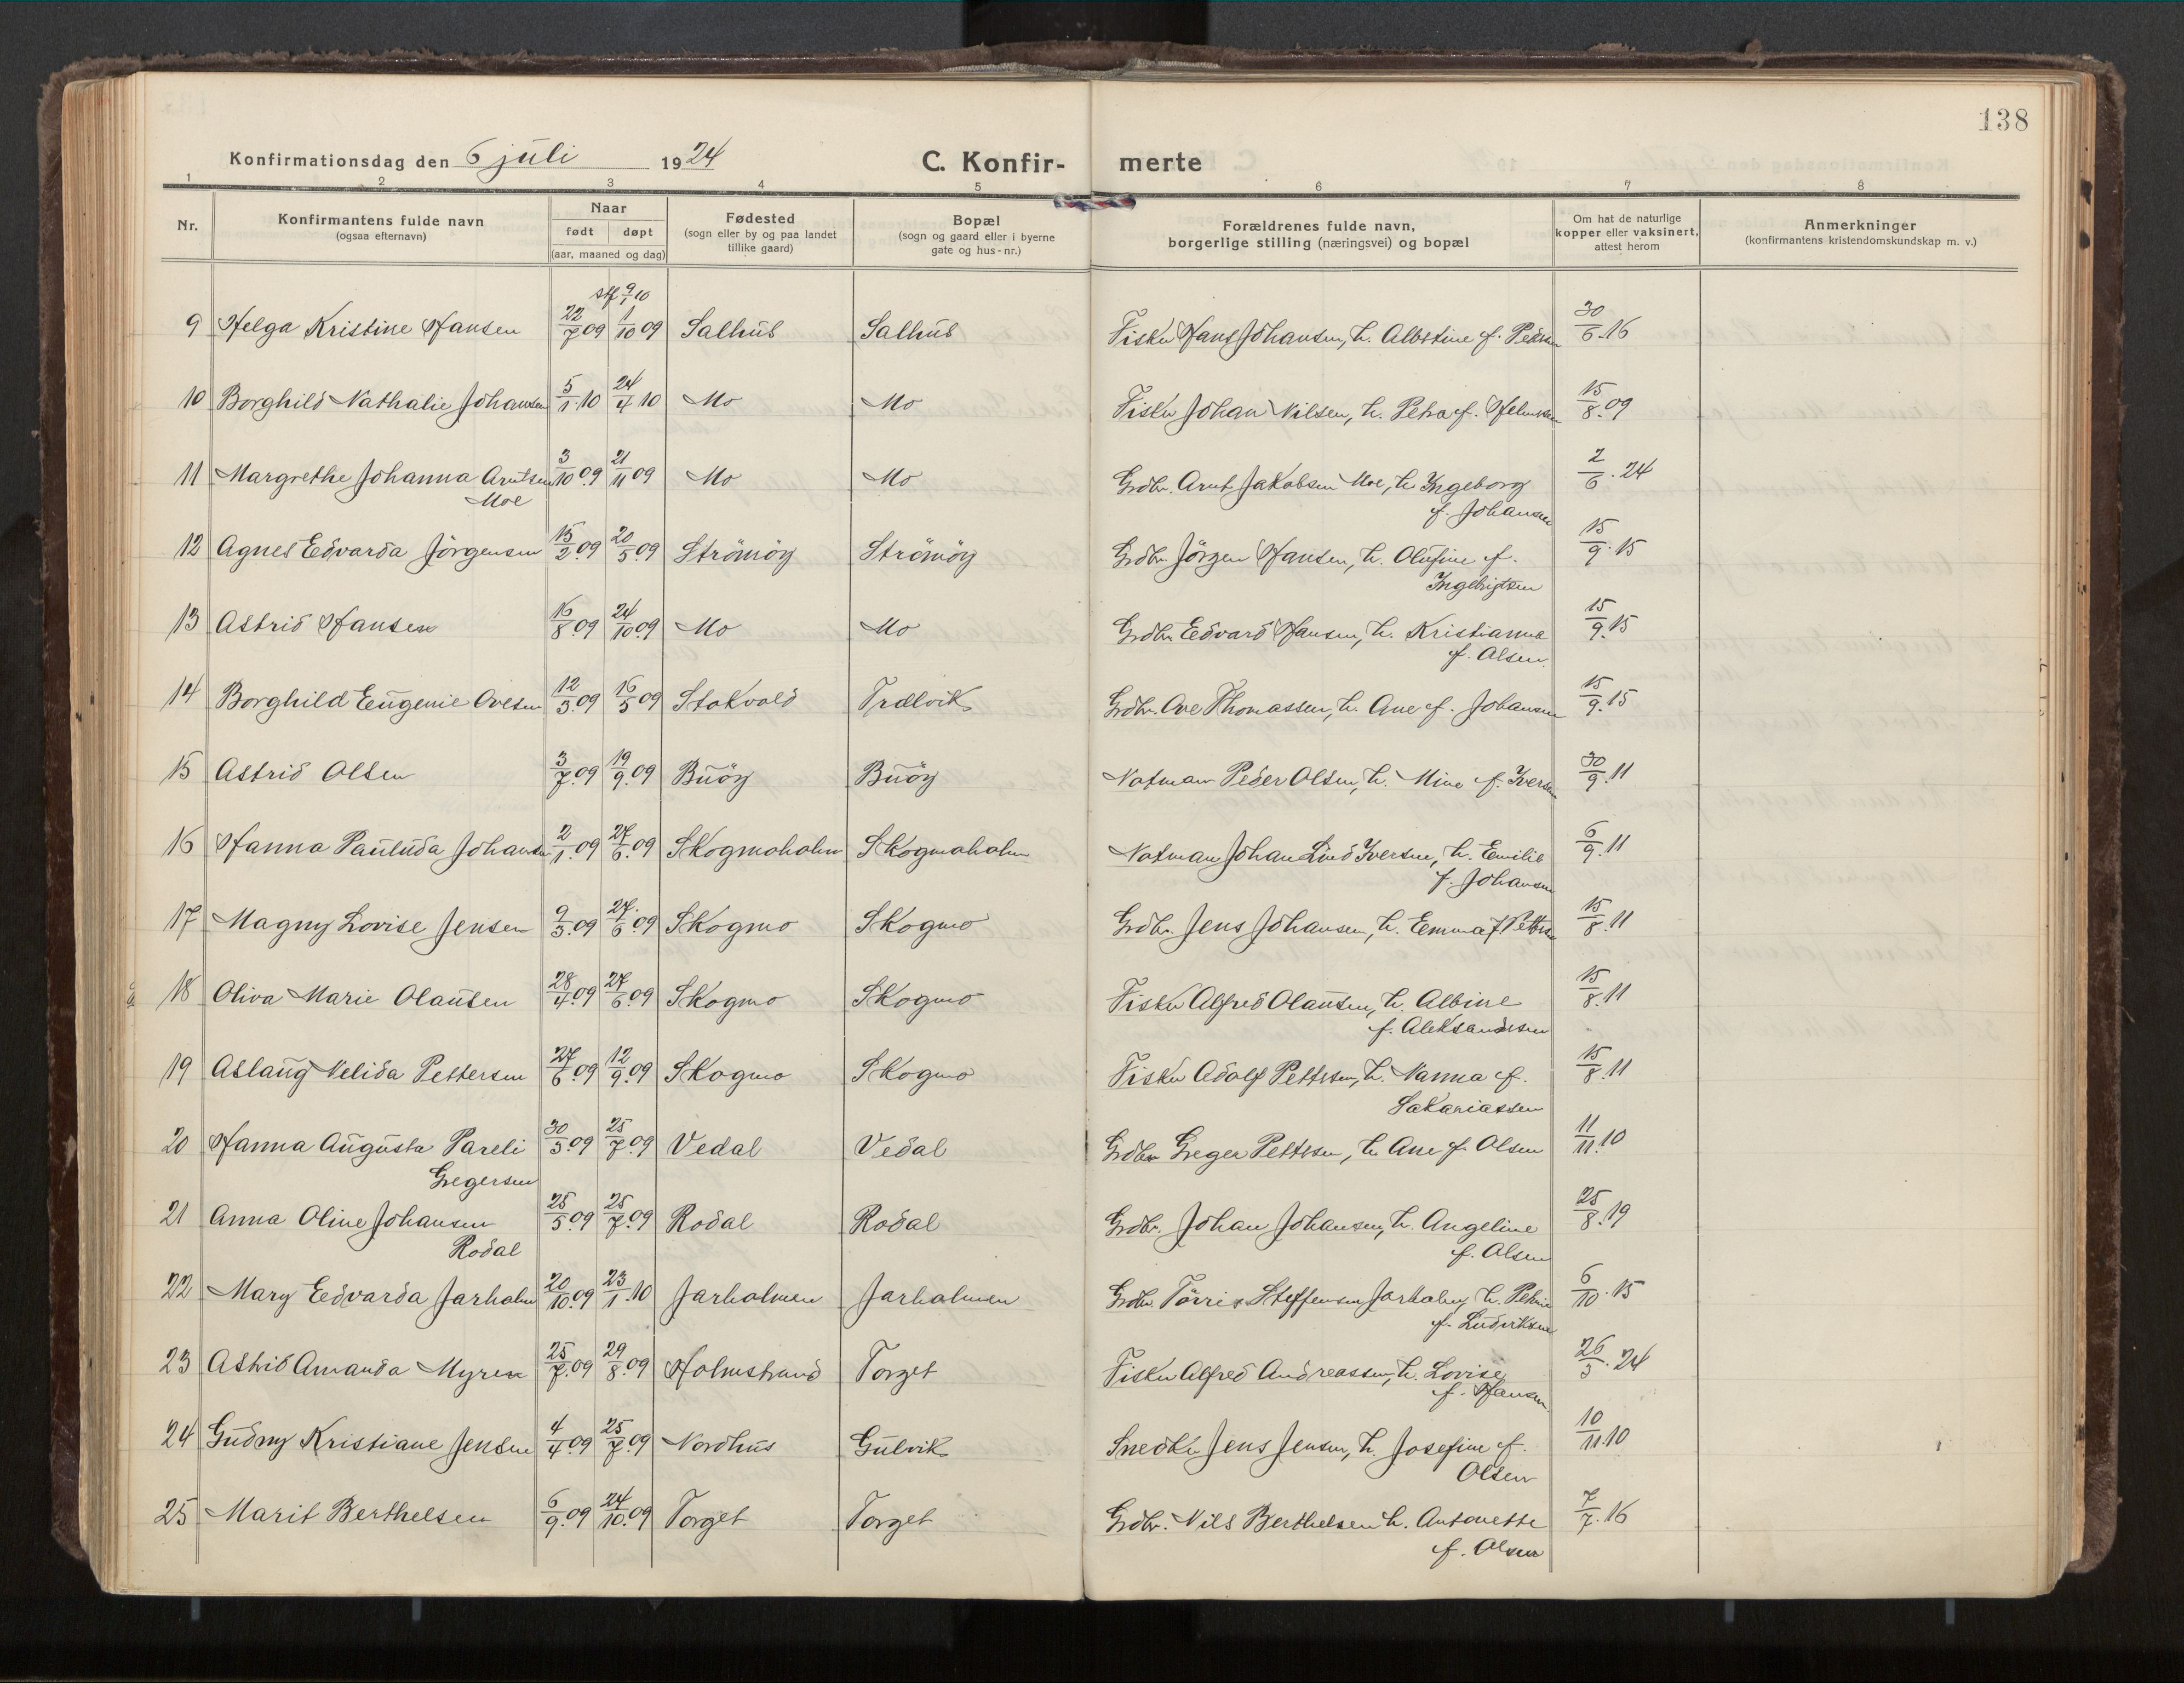 138
Konfirmationsdag den 6 juli 1924 C. Konfir- merte
1 2 3 4 5 6 7 8
Nr. Konfirmantens fulde navn (ogsaa efternavn) Naar født døpt (aar, maaned og dag) Fødested (sogn eller by og paa landet tillike gaard) Bopæl (sogn og gaard eller i byerne gate og hus-nr.) Forældrenes fulde navn, borgerlige stilling (næringsvei) og bopæl Om hat de naturlige kopper eller vaksinert, attest herom Anmerkninger (konfirmantens kristendomskundskap m. v.)
stf 9/1 10
9 Helga Kristine Hansen 22/7 09 1/10 09 Salhus Salhus Fisker Hans Johansen, h. Albertine f. Pedersen 30/6.16
10 Borghild Nathalie Johansen 5/1.10 24/4 10 Mo Mo Fisker Johan Nilsen, h. Petra f. 15/8.09
11 Margrethe Johanna Arntsen 3/10.09 21/11 09 Mo Mo Grdbr. Arnt Jakobsen Moe, h. Ingeborg 2/6.24
Moe f. Johansen
12 Agnes Edvarda Jörgensen 15/2.09 20/5.09 Strömöy Strömöy Grdbr. Jörgen Hansen, h. Olufine f. 15/9.15
Ingebrigtsen
13 Astrid Hansen 16/8.09 24/10.09 Mo Mo Grdbr. Edvard Hansen, h. Kristianna 15/9.15
f. Olsen
14 Borghild Eugenie Ovesen 12/3.09 16/5 09 Stokvold Trælvik Grdbr. Ove Thomassen, h. Ane f. Johansen 15/9.15
15 Astrid Olsen 3/7.09 19/9.09 Buöy Buöy Notman Peder Olsen, h. Mine f. Iversen 30/9.11
16 Hanna Pauluda Johansen 2/1.09 27/6.09 Skogmoholm Skogmoholm Notman Johan Lind Iversen, h. Emilie 6/9.11
f. Johansen
17 Magny Lovise Jensen 9/3.09 27/6.09 Skogmo Skogmo Grdbr. Jens Johansen, h. Emma f. Pettersen 15/8.11
18 Oliva Marie Olausen 28/4.09 27/6.09 Skogmo Skogmo Fisker Alfred Olausen, h. Albine 15/8.11
f. Aleksandersen
19 Aslaug Nelida Pettersen 27/6.09 12/9.09 Skogmo Skogmo Fisker Adolf Pettersen, h. Nanna f. 15/8.11
Sakariassen
20 Hanna Augusta Pareli 30/5.09 25/7.09 Vedal Vedal Grdbr. Greger Pettersen, h. Ane f. Olsen 11/11.10
Gregersen
21 Anna Oline Johansen 25/5.09 25/7.09 Rodal Rodal Grdbr. Johan Johansen, h. Angeline 25/8.19
Rodal f. Olsen
22 Mary Edvarda Jarholm 20/10.09 23/1.10 Jarholmen Jarholmen Grdbr. Törris Steffensen Jarholm, h. Petrine 6/10.15
f. Ludviksen
23 Astrid Amanda Myren 25/7.09 29/8.09 Holmstrand Torget Fisker Alfred Andreassen, h. Lovise 26/3.24
f. Hansen
24 Gudny Kristiane Jensen 4/4.09 25/7.09 Nordhus Gulvik Snedker Jens Jensen, h. Josefine f. 10/11.10
Olsen
25 Marit Berthelsen 6/9.09 24/10.09 Torget Torget Grdbr. Nils Berthelsen h. Antonette 7/7.16
f. Olsen